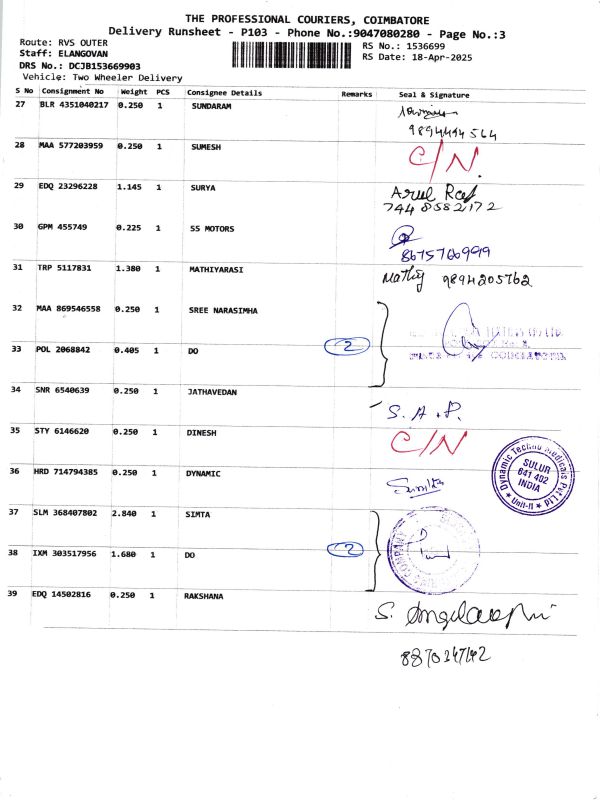 THE PROFESSIONAL COURIERS, COIMBATORE
Delivery Runsheet - P103 - Phone No.:9047080280 - Page No.:3
Route: RVS OUTER
RS No.: 1536699
Staff: ELANGOVAN
RS Date: 18-Apr-2025
DRS No.: DCJB153669903
Vehicle: Two Wheeler Delivery
S No Consignment No Weight PCS Consignee Details Remarks Seal & Signature
27 BLR 4351040217 0.250 1 SUNDARAM
9894494564
28 MAA 577203959 0.250 1 SUMESH C/N.
29 EDQ 23296228 1.145 1 SURYA Arul Raj
744 8582172
30 GPM 455749 0.225 1 SS MOTORS
8675766999
31 TRP 5117831 1.380 1 MATHIYARASI Mathiy 9894205762
32 MAA 869546558 0.250 1 SREE NARASIMHA
33 POL 2068842 0.405 1 DO 2
34 SNR 6540639 0.250 1 JATHAVEDAN
S. A. P.
35 STY 6146620 0.250 1 DINESH C/N
36 HRD 714794385 0.250 1 DYNAMIC
Dynamic Techno Medicals Pvt Ltd
SULUR
641 402
INDIA
Unit-II
37 SLM 368407802 2.840 1 SIMTA
38 IXM 303517956 1.680 1 DO 2
39 EDQ 14502816 0.250 1 RAKSHANA